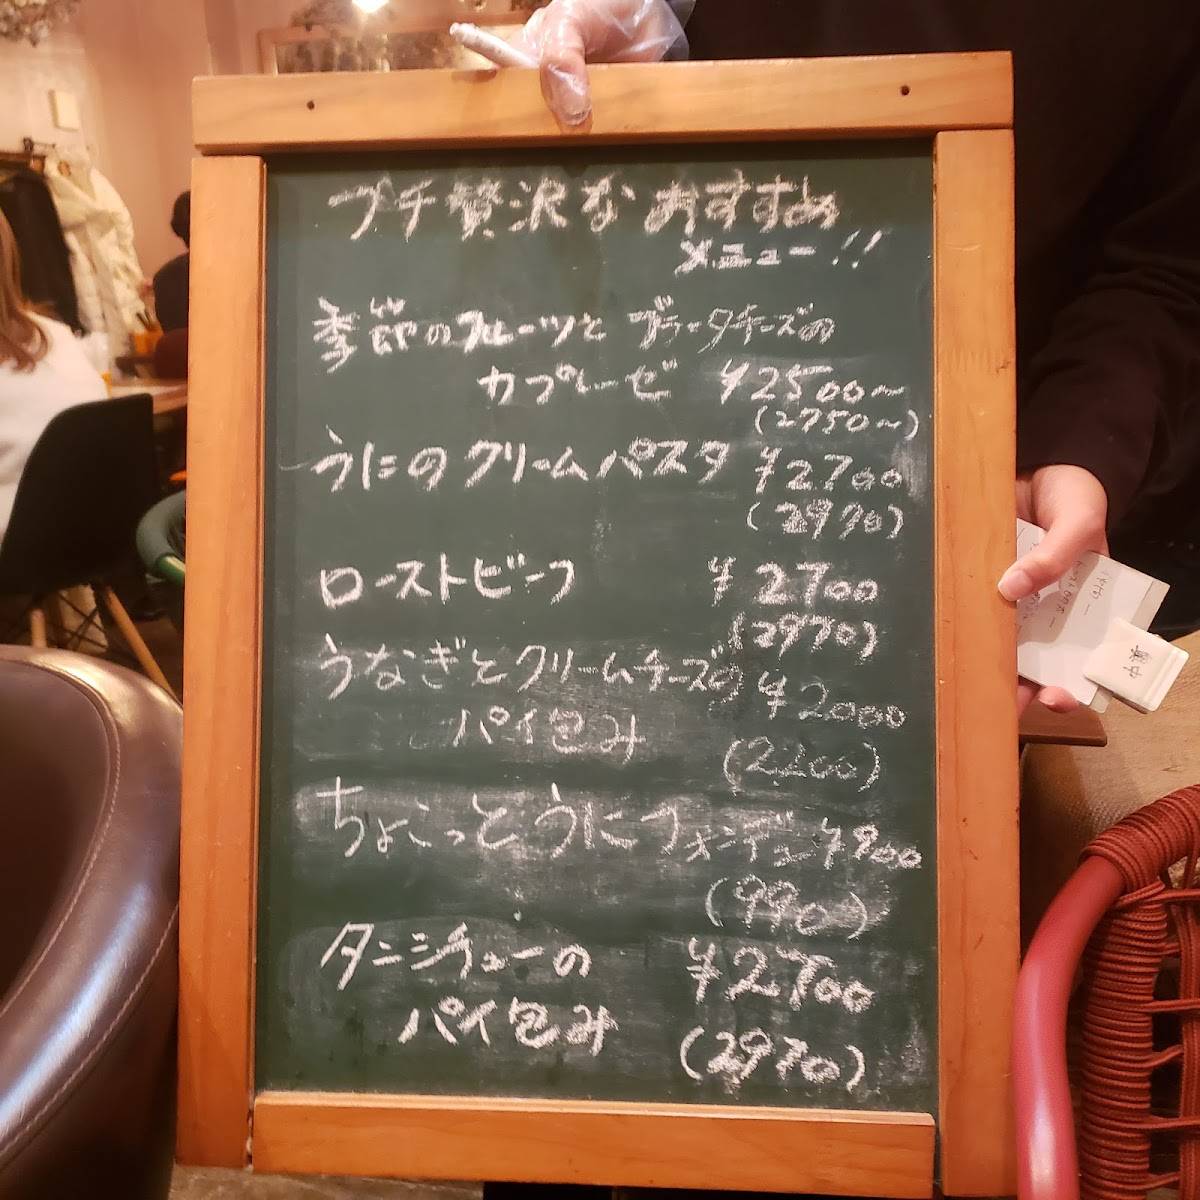 プチ贅沢なおすすめ
メニュー!!
季節のフルーツとブラータチーズの
カプレーゼ ¥2500~
(2750~)
うにのクリームパスタ ¥2700
(2970)
ローストビーフ ¥2700
(2970)
うなぎとクリームチーズの ¥2000
パイ包み
(2200)
ちょこっとうにフォンデュー ¥900
(990)
タンシチューの ¥2700
パイ包み
(2970)